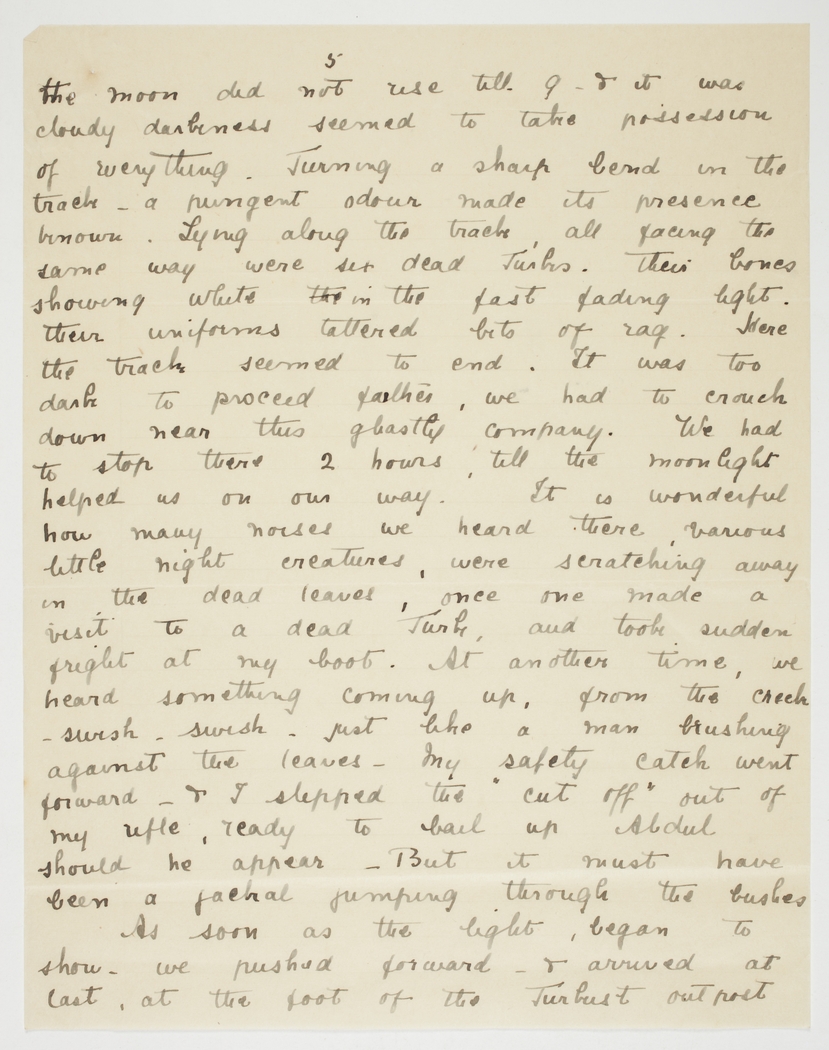 5
the moon did not rise till 9 - & it was
cloudy darkness seemed to take possession
of everything. Turning a sharp bend in the
track - a pungent odour made its presence
known. Lying along the track, all facing the
same way were six dead Turks. Their bones
showing white the in the fast fading light.
their uniforms tattered bits of rag. Here
the track seemed to end. It was too
dark to proceed farther, we had to crouch
down near this ghastly company. We had
to stop there 2 hours, till the moonlight
helped us on our way. It is wonderful
how many noises we heard there, various
little night creatures, were scratching away
in the dead leaves, once one made a
visit to a dead Turk, and took sudden
fright at my boot. At another time, we
heard something coming up, from the creek
- swish - swish - just like a man brushing
against the leaves - My safety catch went
forward - & I slipped the "cut off" out of
my rifle, ready to bail up Abdul
should he appear - But it must have
been a jackal jumping through the bushes
As soon as the light, began to
show - we pushed forward - & arrived at
last, at the foot of the Turkish outpost